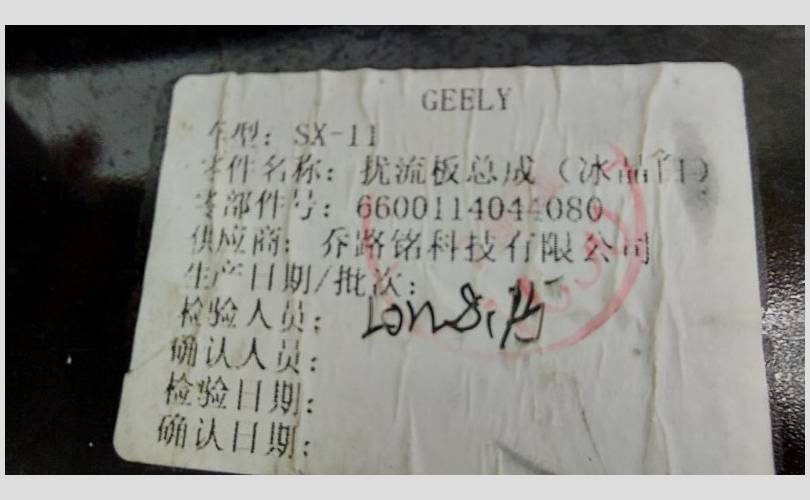 GEELY
车型：SX-11
零件名称：扰流板总成（冰晶白）
零部件号：6600114044080
供应商：乔路铭科技有限公司
生产日期/批次：
检验人员：
确认人员：
检验日期：
确认日期：